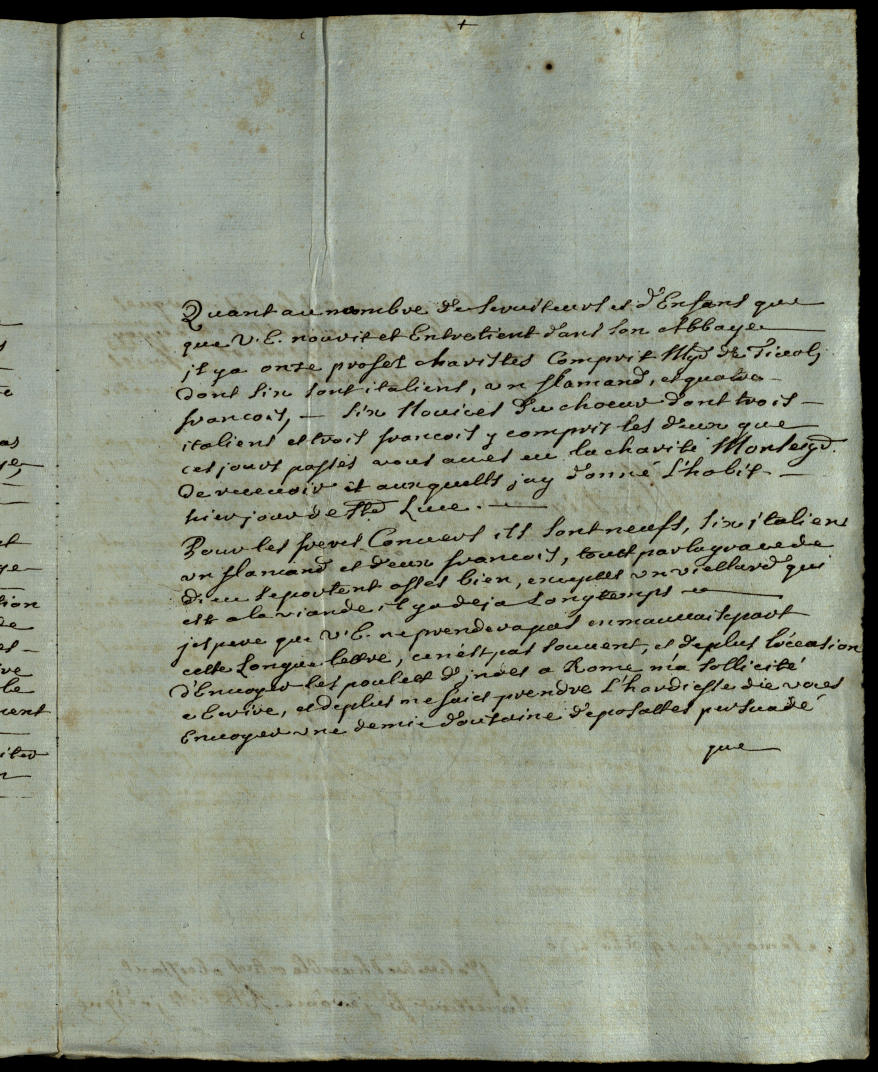 Quant au nombre de Seruiteurs et d'Enfans que
que V. E. nourit et Entretient dans son Abbaye
jl ya onze profes choristes Compris Mgr de Tivoli
dont six sont italiens, un flamand, et quatre
francois, — six Nouices du choeur dont trois —
italiens et trois francois y compris les deux que
ces jours passés vous aues eu la charité Monseigr.
de receuoir et auxquells jay donné L'habit —
hier jour de St. Luc. —
Pour les freres Conuers ils sont neufs, six italiens
un flamand et deux francois, touts par la grace de
dieu se portent asses bien, exceptes un viellard qui
est a la viande il ya deja Longtemps —
jespere que V. E. ne prendera pas en mauuaise part
cette Longue lettre, ce n'est pas souuent, et de plus l'occasion
d'Enuoyer les poulets d'indes a Rome m'a sollicité
a Ecrire, et de plus me faict prendre L'hardiesse de vous
Enuoyer une demie doutaine de posattes persuadé
que
as
et
tion
de
es -
le
ment